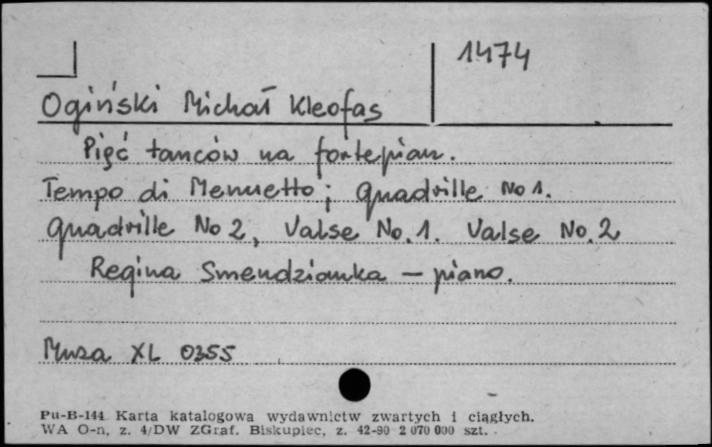 1474
Ogiński Michał Kleofas
Pięć tańców na fortepian.
Tempo di Menuetto; Quadrille No 1.
Quadrille No 2, Valse No. 1. Valse No. 2
Regina Smendzianka – piano.
Muza XL 0355
Pu-B-144 Karta katalogowa wydawnictw zwartych i ciągłych.
WA O-n, z. 4/DW ZGraf. Biskupiec, z. 42-90 2 070 000 szt.